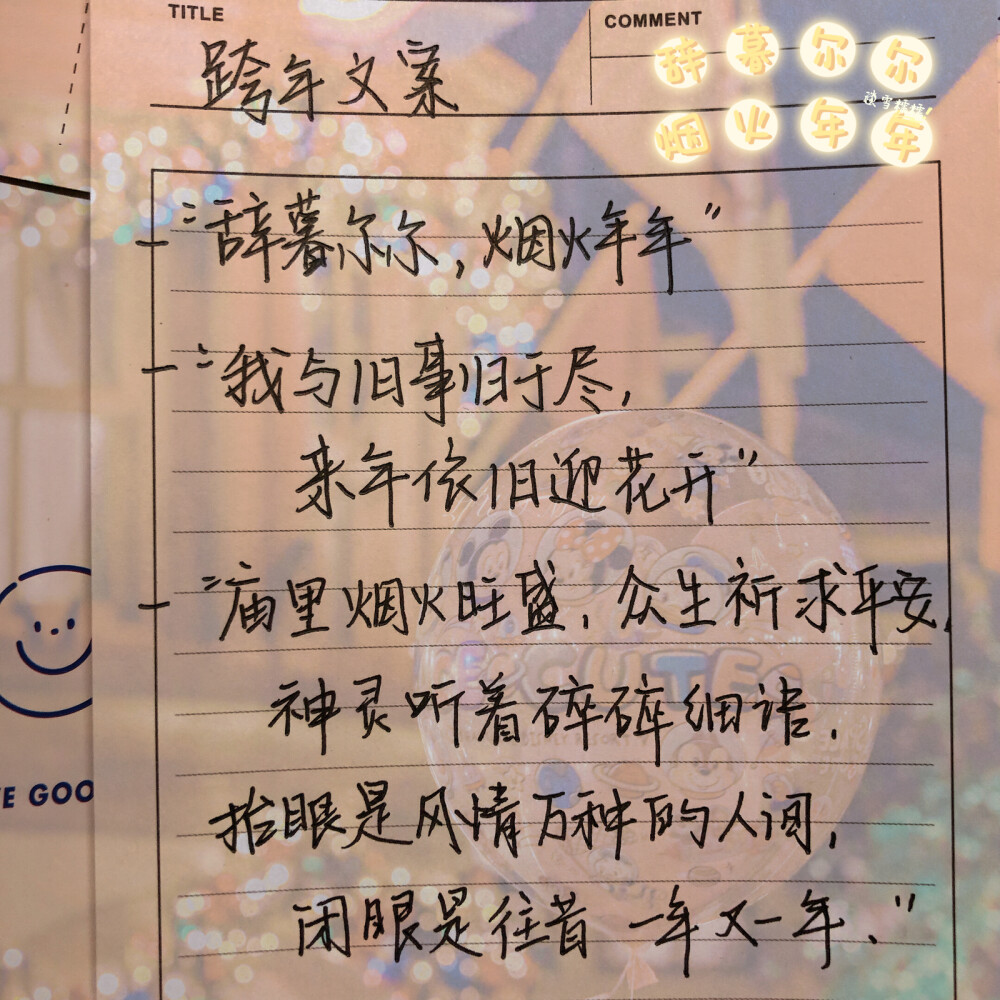 TITLE
COMMENT
跨年文案
辞暮尔尔
烟火年年
- “辞暮尔尔，烟火年年”
- “我与旧事归于尽，
来年依旧迎花开”
- “庙里烟火旺盛，众生祈求平安，
神灵听着碎碎细语．
抬眼是风情万种的人间，
闭眼是往昔一年又一年．”
E GOO